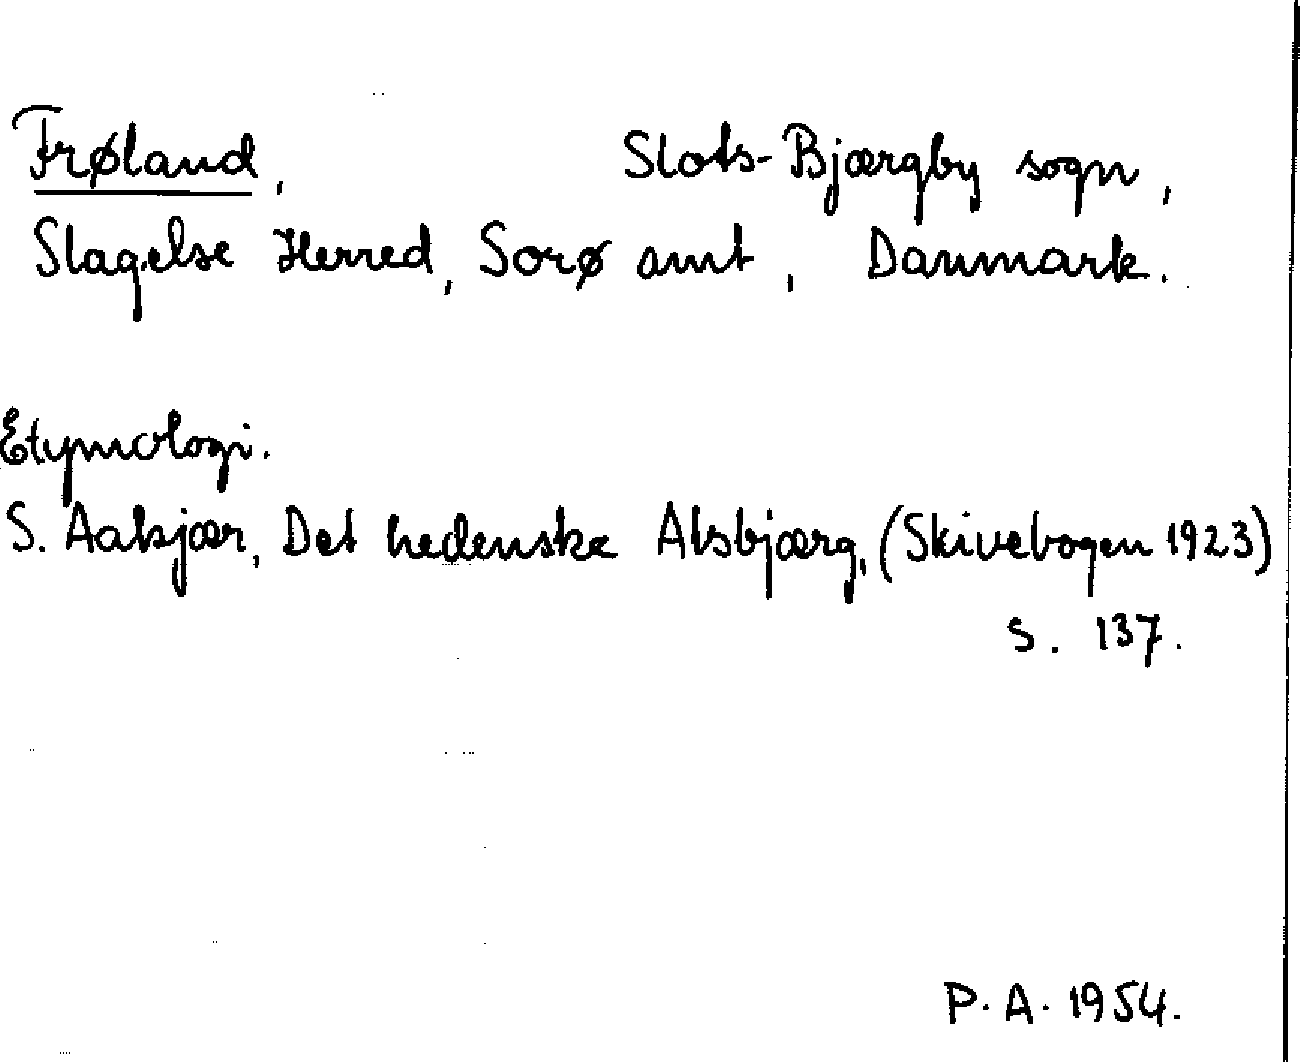 Frøland, Slots-Bjærgby sogn,
Slagelse Herred, Sorø amt, Danmark.
Etymologi.
S. Aakjær, Det hedenske Alsbjærg, (Skivebogen 1923)
s. 137.
P. A. 1954.